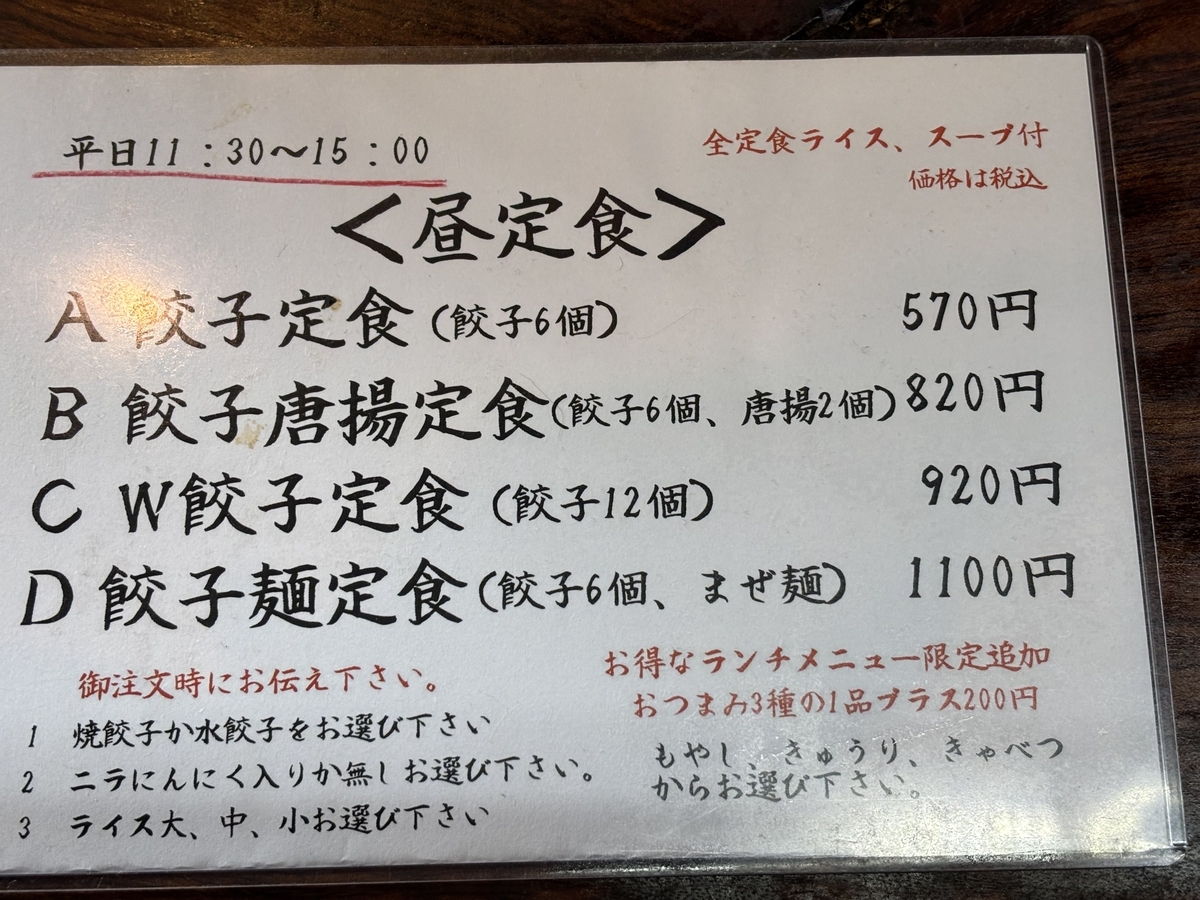 平日11：30〜15：00
全定食ライス、スープ付
価格は税込
＜昼定食＞
A 餃子定食(餃子6個) 570円
B 餃子唐揚定食(餃子6個、唐揚2個) 820円
C W餃子定食(餃子12個) 920円
D 餃子麺定食(餃子6個、まぜ麺) 1100円
御注文時にお伝え下さい。
1 焼餃子か水餃子をお選び下さい
2 ニラにんにく入りか無しお選び下さい。
3 ライス大、中、小お選び下さい
お得なランチメニュー限定追加
おつまみ3種の1品プラス200円
もやし、きゅうり、きゃべつ
からお選び下さい。